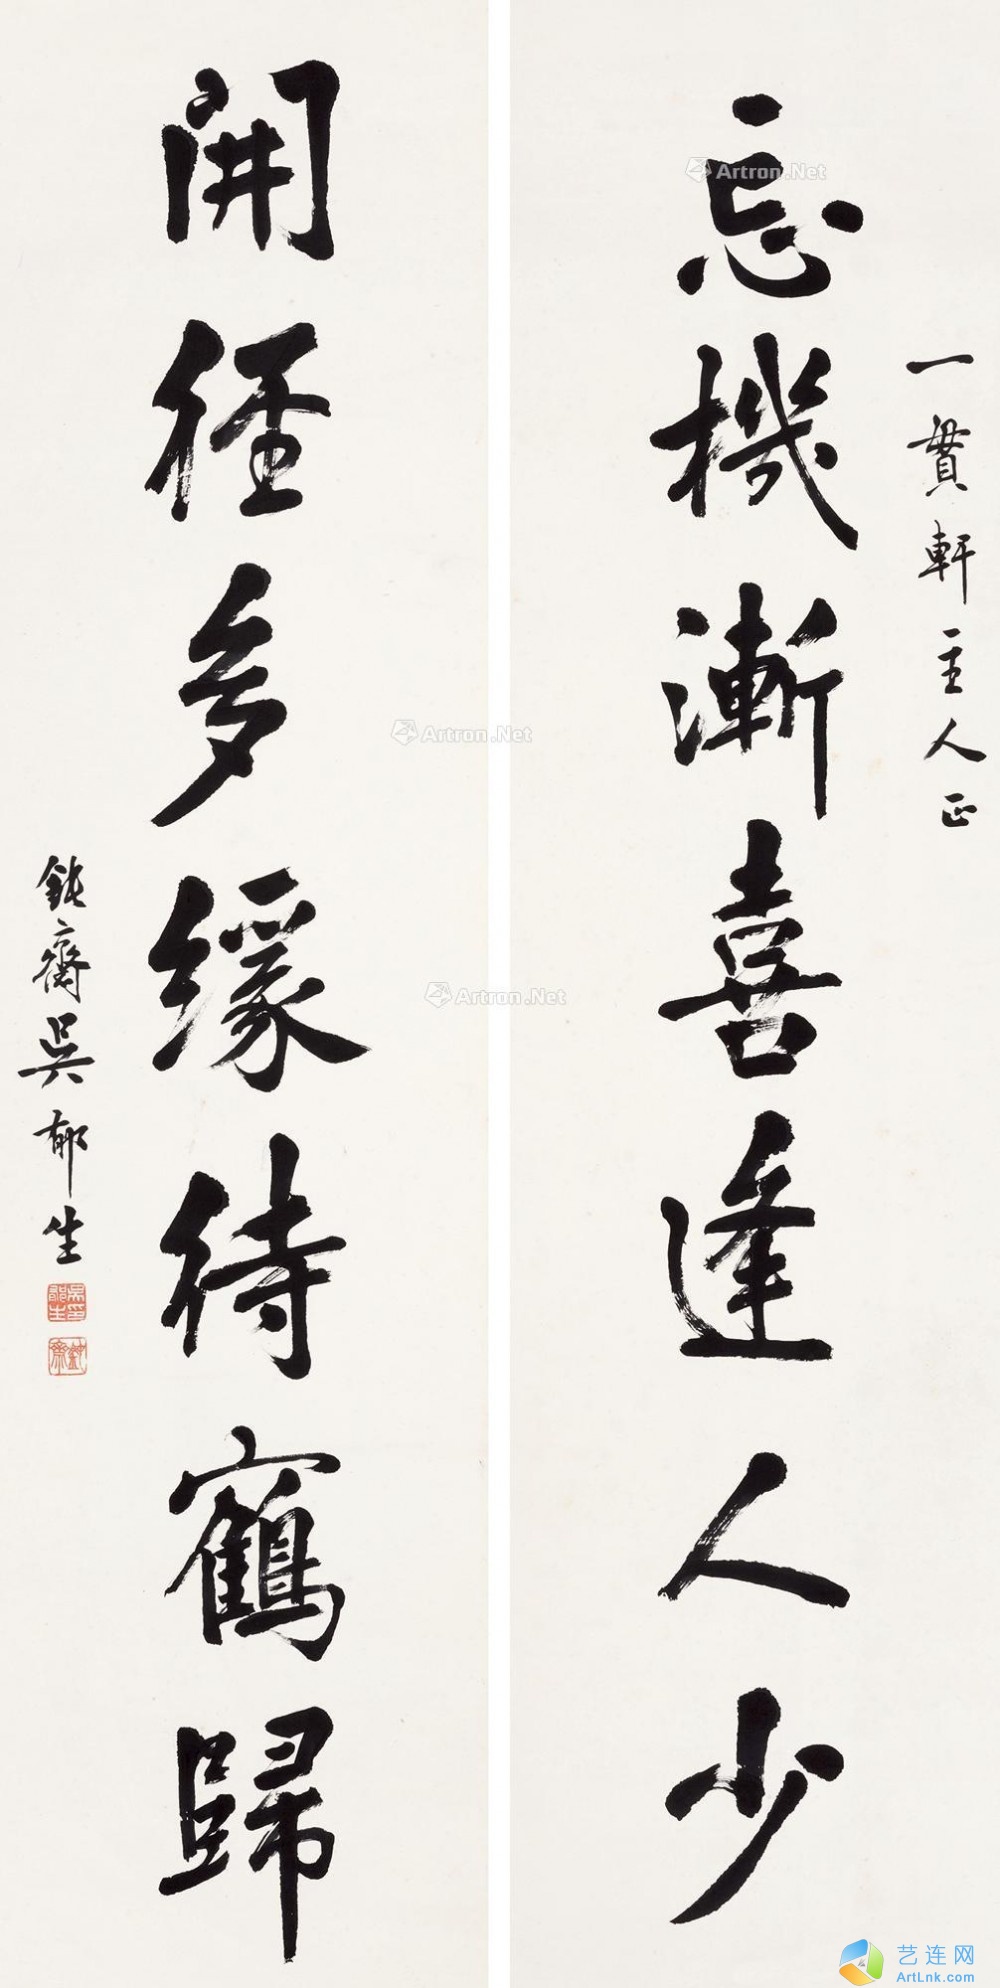 一貫軒主人正
忘機漸喜逢人少
開徑多緣待鶴歸
鈍齋吳郁生
吳印郁生
鈍齋
Artron.Net
Artron.Net
Artron.Net
艺连网
ArtLnk.com